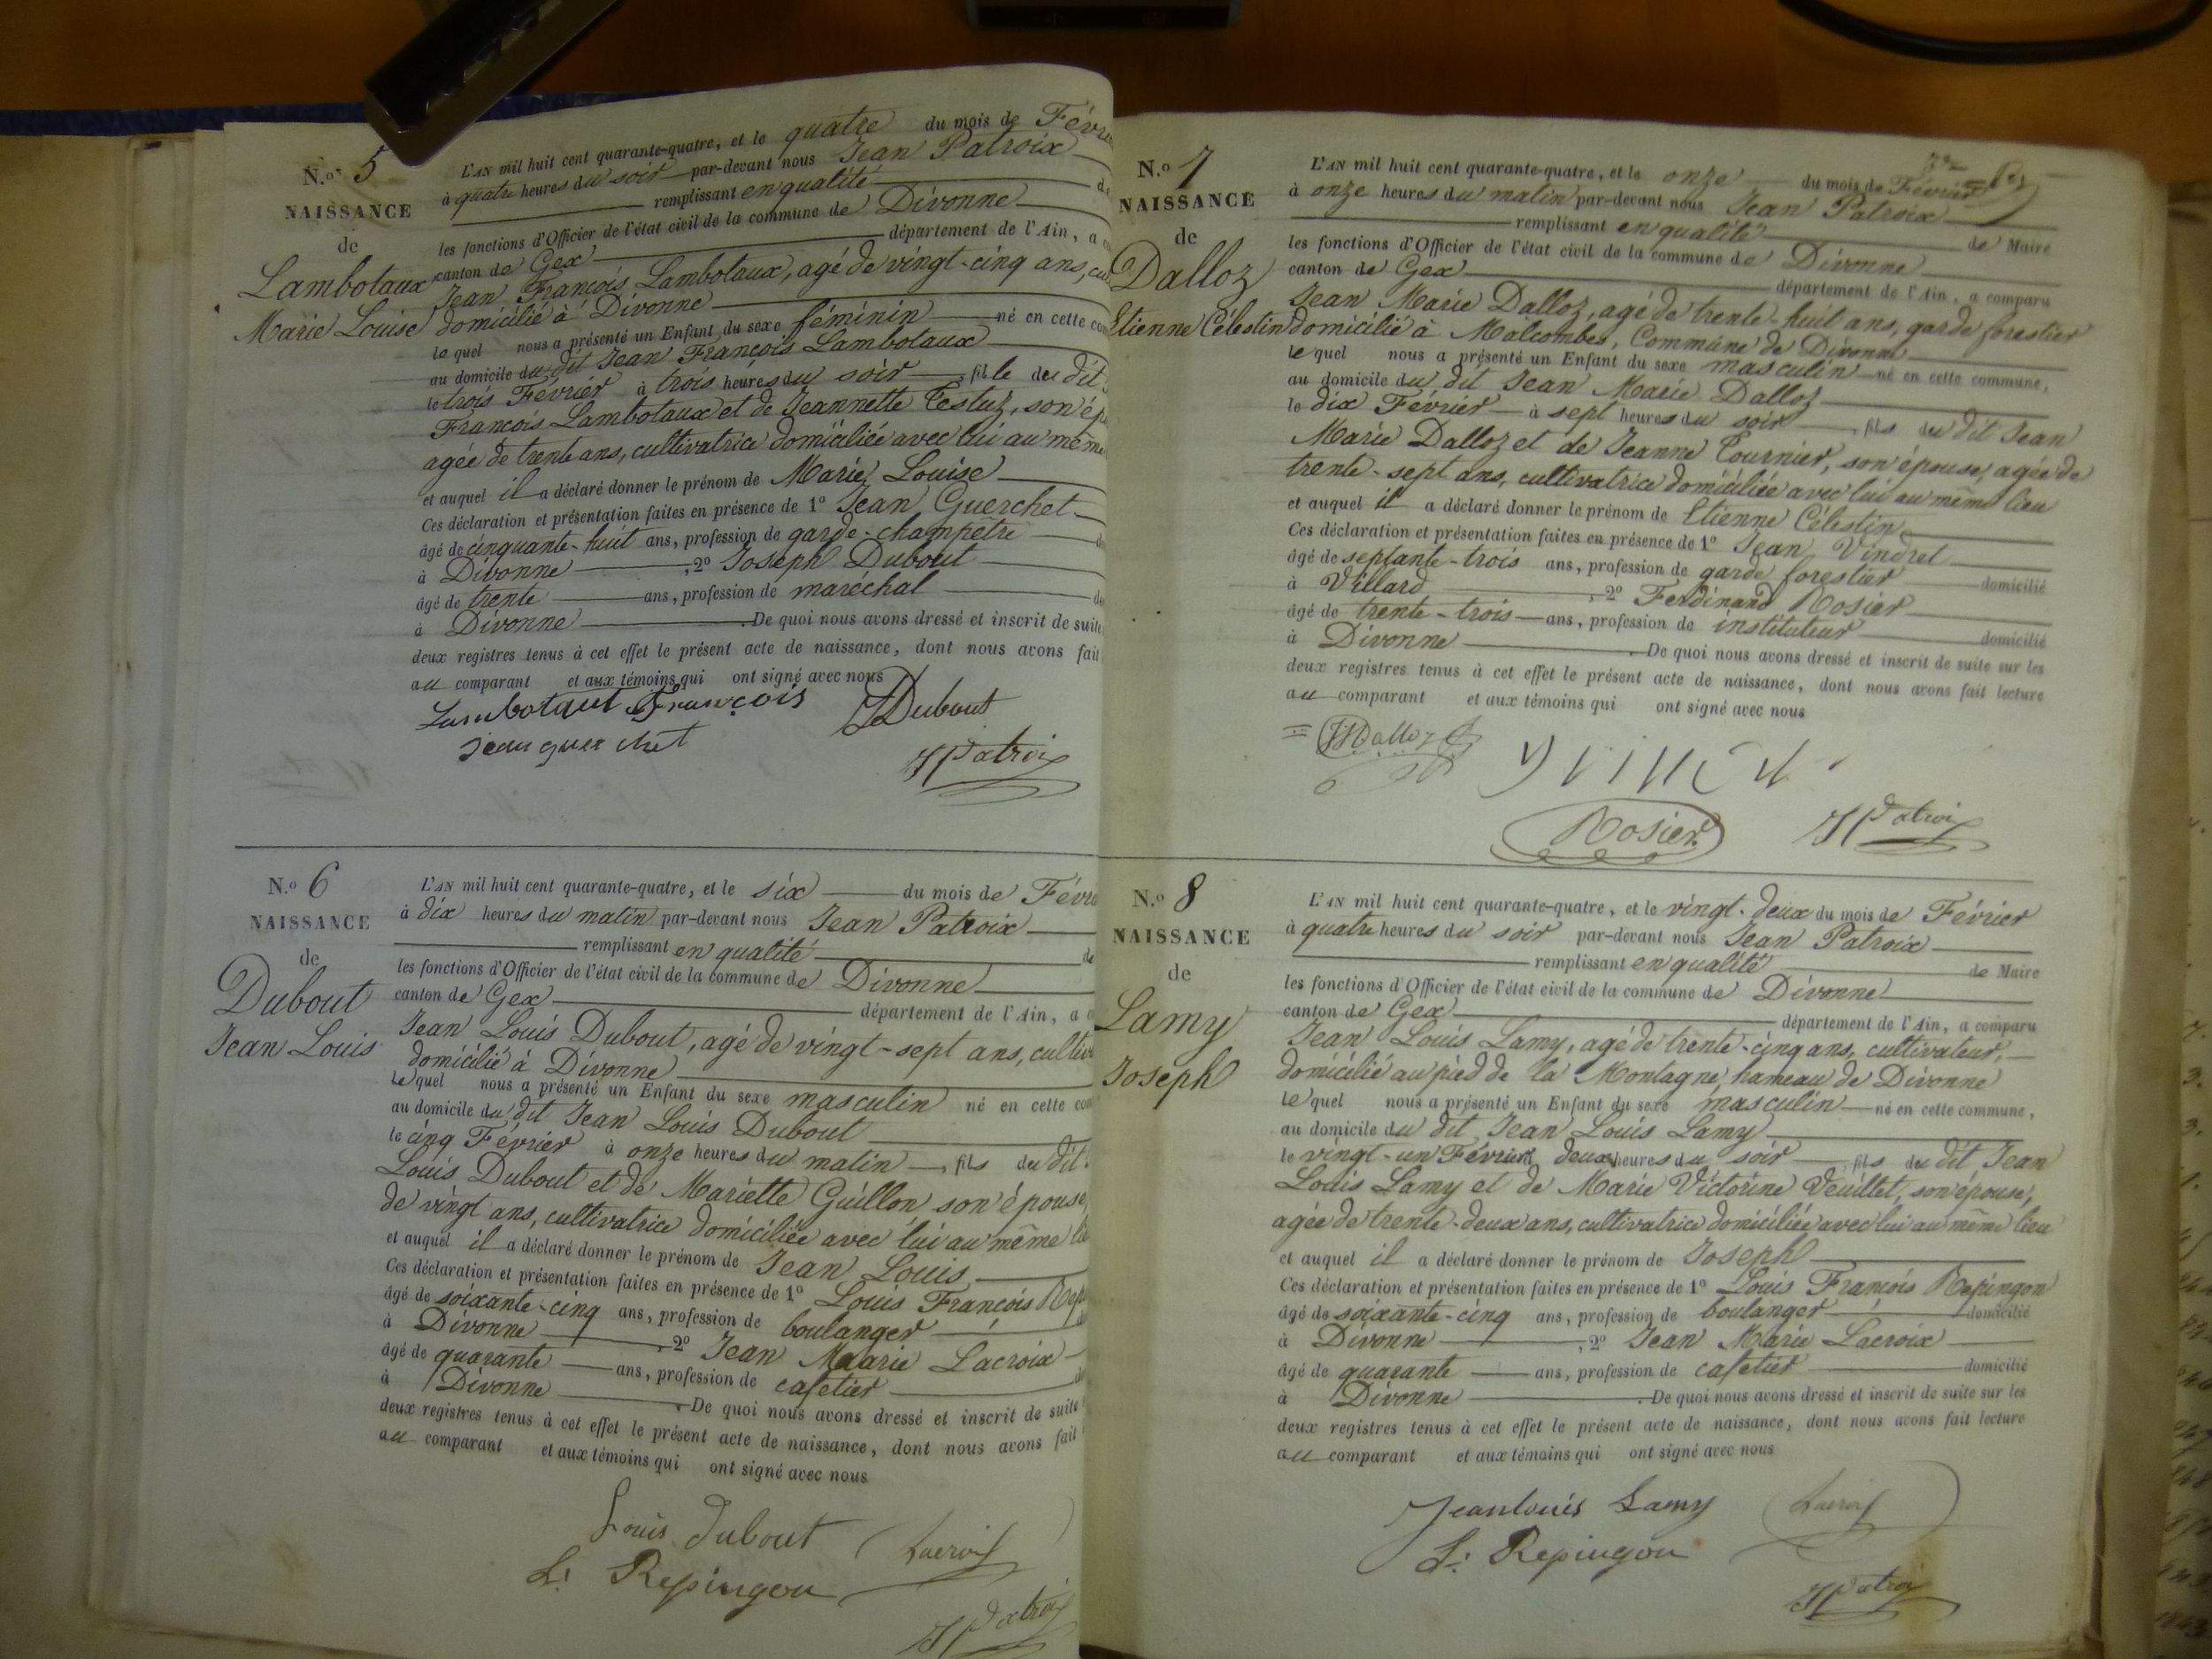 N.º 5
NAISSANCE
de
Lambotaux
Marie Louise
L'AN mil huit cent quarante-quatre, et le quatre du mois de Févri
à quatre heures du soir par-devant nous Jean Patroix
remplissant en qualité de
les fonctions d'Officier de l'état civil de la commune de Divonne
canton de Gex département de l'Ain, a
Jean François Lambotaux, agé de vingt-cinq ans, cu
domicilié à Divonne
lequel nous a présenté un Enfant du sexe féminin né en cette co
au domicile du dit Jean François Lambotaux
le trois Février à trois heures du soir fille du dit
François Lambotaux et de Jeannette Testuz, son ép
agée de trente ans, cultivatrice domiciliée avec lui au même
et auquel il a déclaré donner le prénom de Marie Louise
Ces déclaration et présentation faites en présence de 1º Jean Guerchet
âgé de cinquante-huit ans, profession de garde-champêtre
à Divonne ; 2º Joseph Dubout
âgé de trente ans, profession de maréchal
à Divonne . De quoi nous avons dressé et inscrit de suite
deux registres tenus à cet effet le présent acte de naissance, dont nous avons fait
au comparant et aux témoins qui ont signé avec nous
Lambotaut François JDubout
Jean guerchet
JPatroix
N.º 6
NAISSANCE
de
Dubout
Jean Louis
L'AN mil huit cent quarante-quatre, et le six du mois de Févri
à dix heures du matin par-devant nous Jean Patroix
remplissant en qualité de
les fonctions d'Officier de l'état civil de la commune de Divonne
canton de Gex département de l'Ain, a
Jean Louis Dubout, agé de vingt-sept ans, cultiv
domicilié à Divonne
lequel nous a présenté un Enfant du sexe masculin né en cette co
au domicile du dit Jean Louis Dubout
le cinq Février à onze heures du matin, fils du dit
Louis Dubout et de Mariette Guillon son épouse,
de vingt ans, cultivatrice domiciliée avec lui au même lie
et auquel il a déclaré donner le prénom de Jean Louis
Ces déclaration et présentation faites en présence de 1º Louis François Rep
âgé de soixante-cinq ans, profession de boulanger
à Divonne , 2º Jean Marie Lacroix
âgé de quarante ans, profession de cafetier
à Divonne . De quoi nous avons dressé et inscrit de suite
deux registres tenus à cet effet le présent acte de naissance, dont nous avons fait
au comparant et aux témoins qui ont signé avec nous
Louis Dubout Lacroix
L: Repingon
JPatroix
N.º 7
NAISSANCE
de
Dalloz
Etienne Célestin
L'AN mil huit cent quarante-quatre, et le onze du mois de Février
à onze heures du matin par-devant nous Jean Patroix
remplissant en qualité de Maire
les fonctions d'Officier de l'état civil de la commune de Divonne
canton de Gex département de l'Ain, a comparu
Jean Marie Dalloz, agé de trente-huit ans, garde forestier
domicilié à Malcombes, Commune de Divonne
lequel nous a présenté un Enfant du sexe masculin né en cette commune,
au domicile du dit Jean Marie Dalloz
le dix Février à sept heures du soir, fils du dit Jean
Marie Dalloz et de Jeanne Tournier, son épouse, agée de
trente-sept ans, cultivatrice domiciliée avec lui au même lieu
et auquel il a déclaré donner le prénom de Etienne Célestin
Ces déclaration et présentation faites en présence de 1º Jean Vindret
âgé de septante-trois ans, profession de garde forestier domicilié
à Villard , 2º Ferdinand Rosier
âgé de trente-trois ans, profession de instituteur domicilié
à Divonne . De quoi nous avons dressé et inscrit de suite sur les
deux registres tenus à cet effet le présent acte de naissance, dont nous avons fait lecture
au comparant et aux témoins qui ont signé avec nous
JMDalloz
Rosier JPatroix
N.º 8
NAISSANCE
de
Lamy
Joseph
L'AN mil huit cent quarante-quatre, et le vingt-deux du mois de Février
à quatre heures du soir par-devant nous Jean Patroix
remplissant en qualité de Maire
les fonctions d'Officier de l'état civil de la commune de Divonne
canton de Gex département de l'Ain, a comparu
Jean Louis Lamy, agé de trente-cinq ans, cultivateur,
domicilié au pied de la Montagne, hameau de Divonne
lequel nous a présenté un Enfant du sexe masculin né en cette commune,
au domicile du dit Jean Louis Lamy
le vingt-un Février à deux heures du soir, fils du dit Jean
Louis Lamy et de Marie Victorine Veuillet, son épouse,
agée de trente-deux ans, cultivatrice domiciliée avec lui au même lieu
et auquel il a déclaré donner le prénom de Joseph
Ces déclaration et présentation faites en présence de 1º Louis François Repingon
âgé de soixante-cinq ans, profession de boulanger domicilié
à Divonne , 2º Jean Marie Lacroix
âgé de quarante ans, profession de cafetier domicilié
à Divonne . De quoi nous avons dressé et inscrit de suite sur les
deux registres tenus à cet effet le présent acte de naissance, dont nous avons fait lecture
au comparant et aux témoins qui ont signé avec nous
Jean louis Lamy Lacroix
L: Repingon
JPatroix